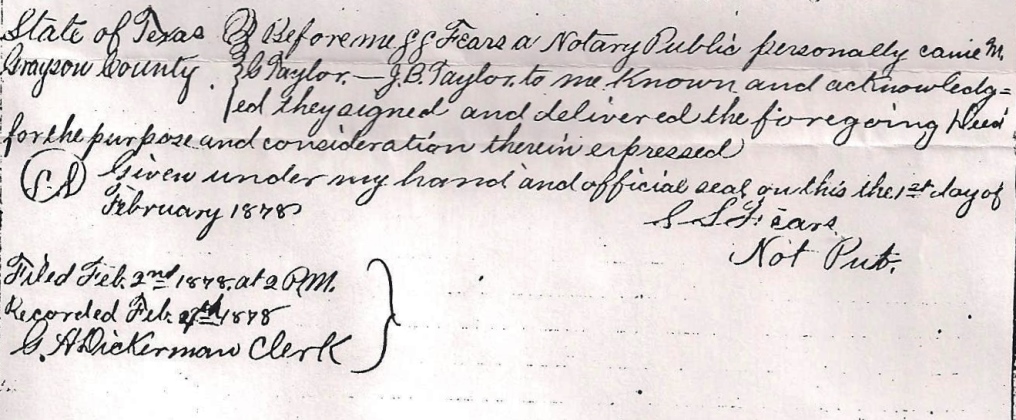 State of Texas } Before me S S Fears a Notary Public personally came M.
Grayson County. } G Taylor. — J. B. Taylor. to me Known and acknowledg=
ed they signed and delivered the foregoing Deed
for the purpose and consideration therein expressed
Given under my hand and official seal on this the 1st day of
February 1878
S S Fears
Not Pub.
Filed Feb. 2nd 1878. at 2 P.M.
Recorded Feb. 1878
G. A Dickerman Clerk